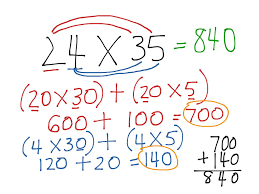 24 X 35 = 840
(20 X 30) + (20 X 5)
600 + 100 = 700
(4 X 30) + (4 X 5)
120 + 20 = 140
700
+140
840